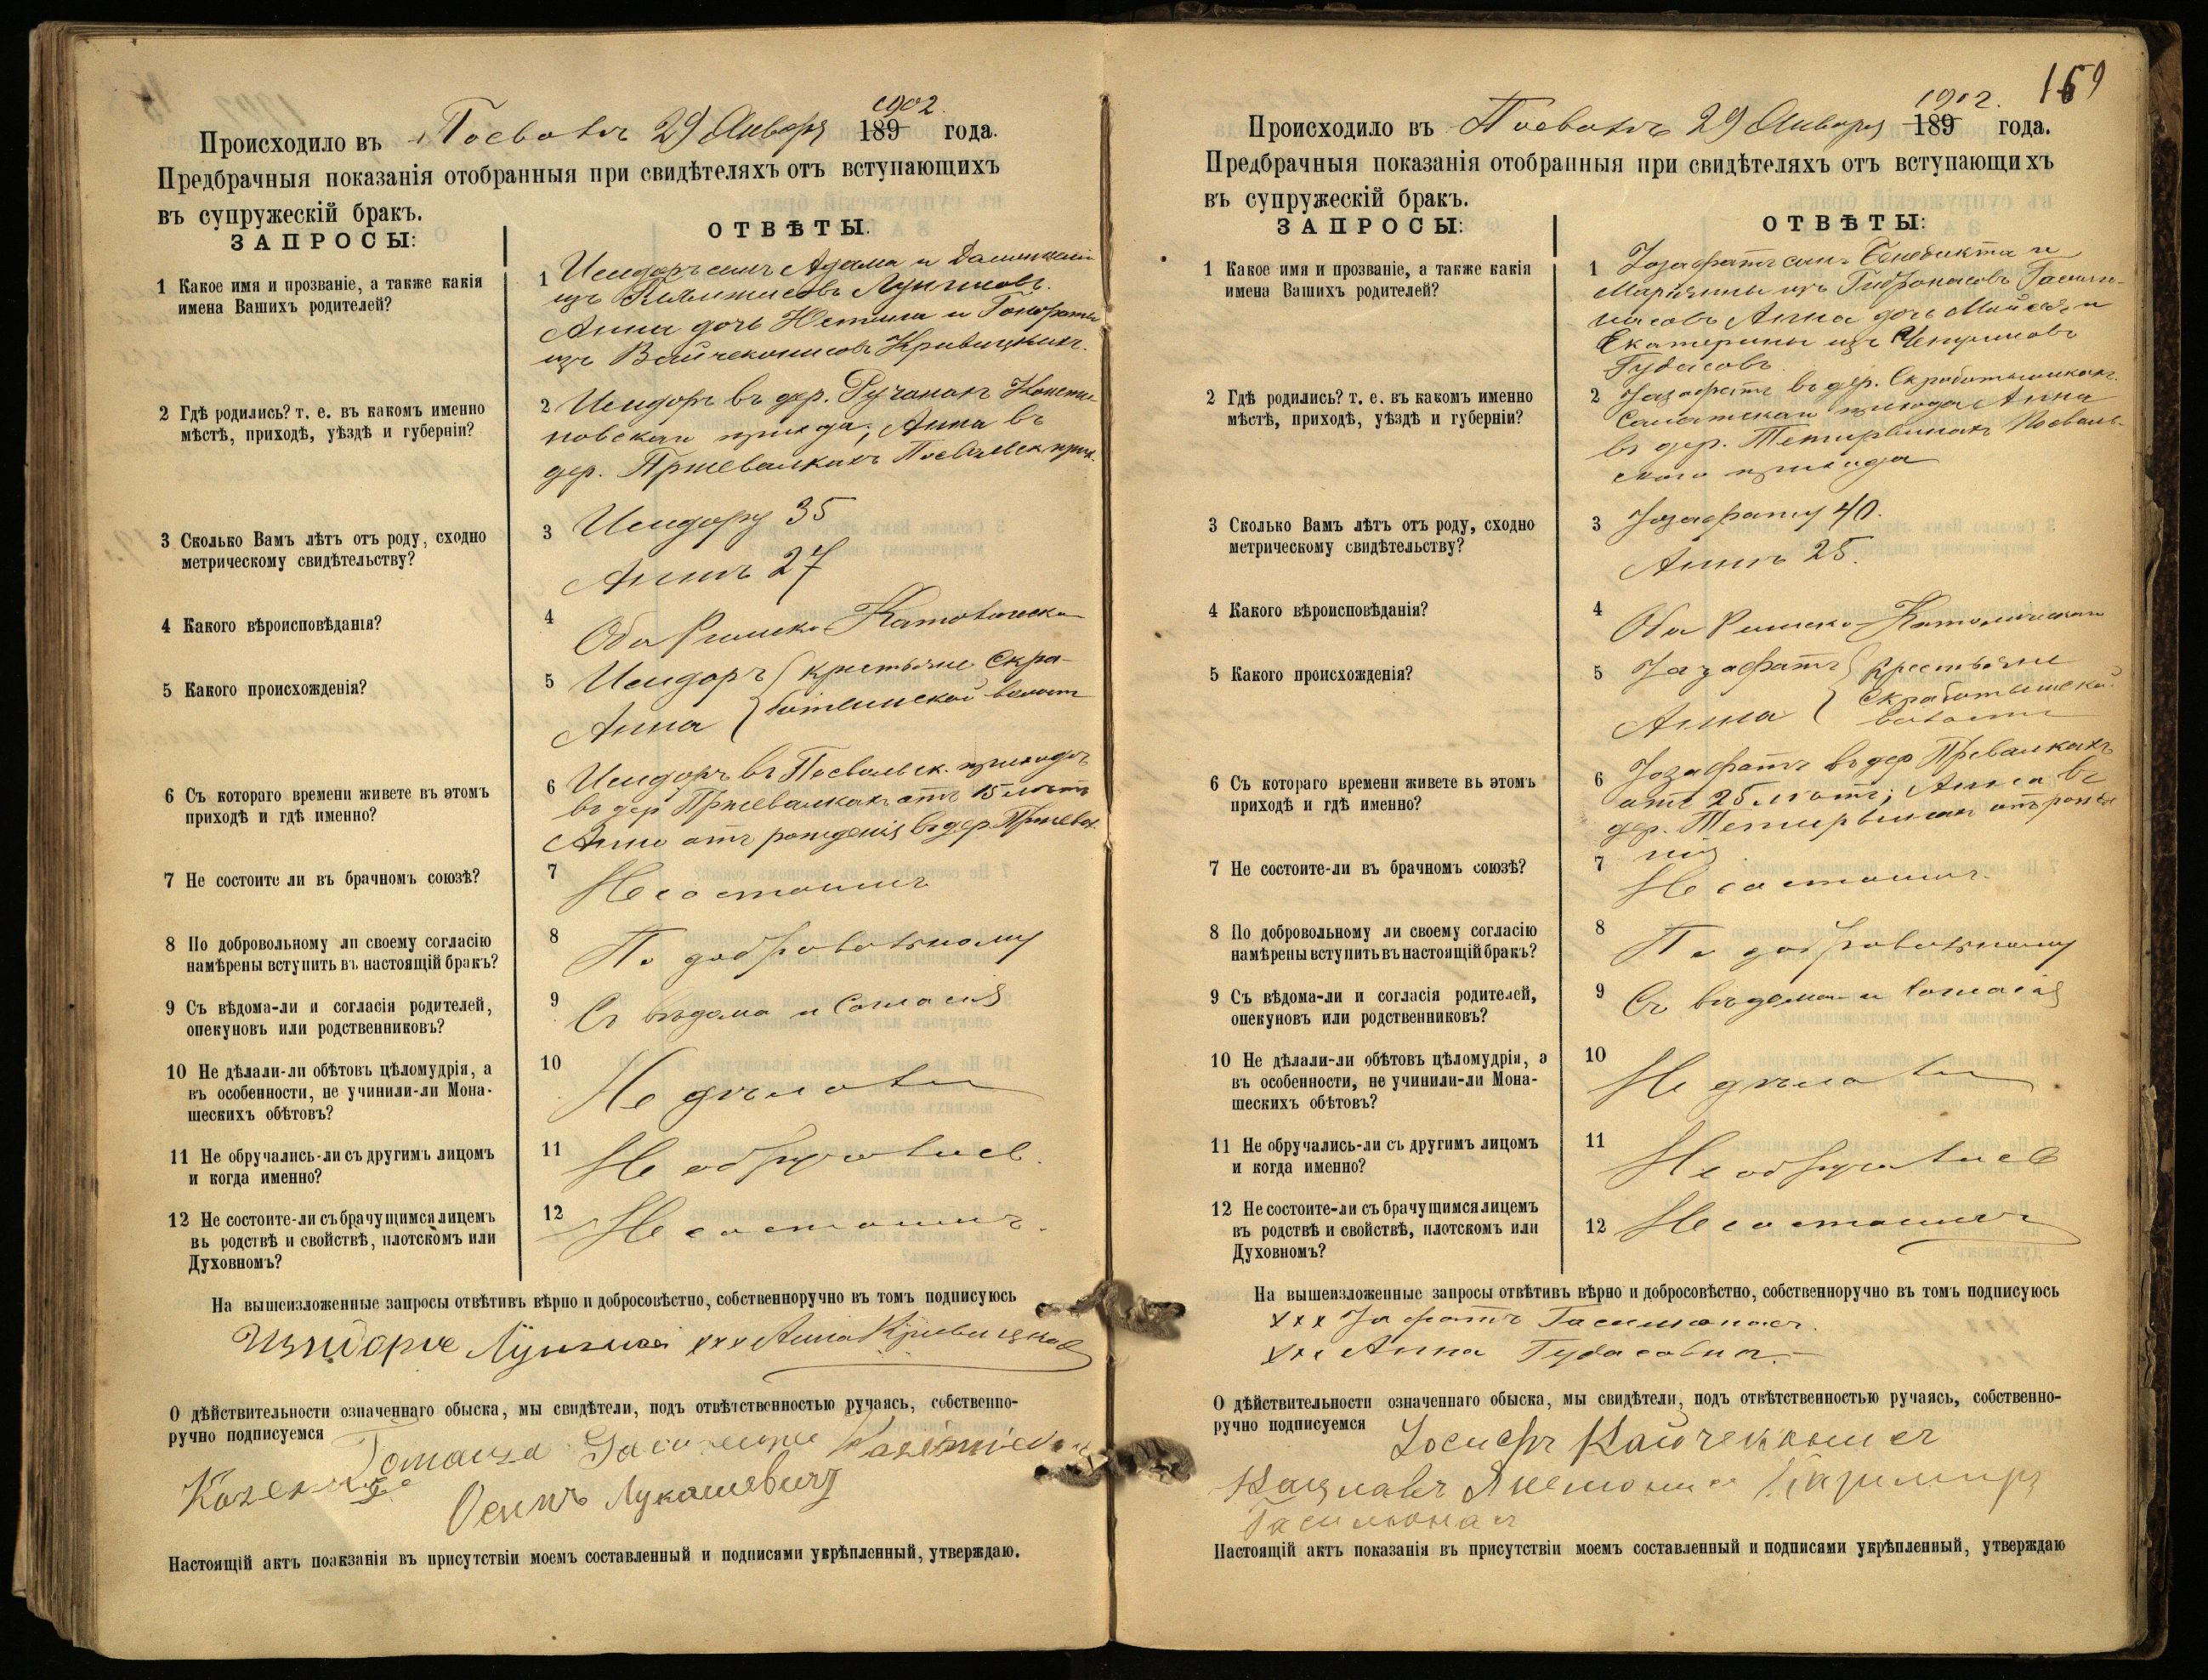 1902.
Происходило въ Посволѣ 29 Января 189 года.
Предбрачныя показанія отобранныя при свидѣтеляхъ отъ вступающихъ
въ супружескій бракъ.
ЗАПРОСЫ:
ОТВѢТЫ.
1 Какое имя и прозваніе, а также какія
имена Вашихъ родителей?
1 Исидоръ сынъ Адама и
изъ
Анна дочь Юстина и
изъ
2 Гдѣ родились? т. е. въ какомъ именно
мѣстѣ, приходѣ, уѣздѣ и губерніи?
2 Исидоръ въ дер.
прихода, Анна въ
дер. Пршевалкахъ Посвольск. прих.
3 Сколько Вамъ лѣтъ отъ роду, сходно
метрическому свидѣтельству?
3 Исидору 35
Аннѣ 27
4 Какого вѣроисповѣданія?
4 Оба Римско-Католическа
5 Какого происхожденія?
5 Исидоръ } крестьяне Скра-
Анна } ботишской волости
6 Съ котораго времени живете въ этомъ
приходѣ и гдѣ именно?
6 Исидоръ въ Посвольск. приходѣ
въ дер Пршевалкахъ отъ 15 лѣтъ
Анна отъ рожденія въ дер. Пршевал.
7 Не состоите ли въ брачномъ союзѣ?
7 Не состоимъ
8 По добровольному ли своему согласію
намѣрены вступить въ настоящій бракъ?
8 По добровольному
9 Съ вѣдома-ли и согласія родителей,
опекуновъ или родственниковъ?
9 Съ вѣдома и согласія
10 Не дѣлали-ли обѣтовъ цѣломудрія, а
въ особенности, не учинили-ли Мона-
шескихъ обѣтовъ?
10 Не дѣлали
11 Не обручались-ли съ другимъ лицомъ
и когда именно?
11 Не обручались.
12 Не состоите-ли съ брачущимся лицемъ
въ родствѣ и свойствѣ, плотскомъ или
Духовномъ?
12 Не состоимъ.
На вышеизложенные запросы отвѣтивъ вѣрно и добросовѣстно, собственноручно въ томъ подписуюсь
xxx Анна
О дѣйствительности означеннаго обыска, мы свидѣтели, подъ отвѣтственностью ручаясь, собственно-
ручно подписуемся
Осипъ Лукашевичъ
Настоящій актъ поакзанія въ присутствіи моемъ составленный и подписями укрѣпленный, утверждаю.
159
1902.
Происходило въ Посволѣ 29 Января 189 года.
Предбрачныя показанія отобранныя при свидѣтеляхъ отъ вступающихъ
въ супружескій бракъ.
ЗАПРОСЫ:
ОТВѢТЫ:
1 Какое имя и прозваніе, а также какія
имена Вашихъ родителей?
1 Іозафатъ сынъ Бенедикта и
Маріянны изъ
Анна дочь Моисея и
Екатерины изъ
Губасовъ.
2 Гдѣ родились? т. е. въ какомъ именно
мѣстѣ, приходѣ, уѣздѣ и губерніи?
2 Іозафатъ въ дер. Скработишкахъ
прихода Анна
въ дер. Тетирвинахъ Посволь-
скаго прихода
3 Сколько Вамъ лѣтъ отъ роду, сходно
метрическому свидѣтельству?
3 Іозафату 40.
Аннѣ 25.
4 Какого вѣроисповѣданія?
4 Оба Римско-Католическаго
5 Какого происхожденія?
5 Іозафатъ } Крестьяне
Анна } Скработишской
волости
6 Съ котораго времени живете въ этомъ
приходѣ и гдѣ именно?
6 Іозафатъ въ дер Превалкахъ
отъ 25 лѣтъ; Анна въ
дер. Тетирвинахъ отъ рожде-
нія
7 Не состоите-ли въ брачномъ союзѣ?
7 Не состоимъ.
8 По добровольному ли своему согласію
намѣрены вступить въ настоящій бракъ?
8 По добровольному
9 Съ вѣдома-ли и согласія родителей,
опекуновъ или родственниковъ?
9 Съ вѣдома и согласія
10 Не дѣлали-ли обѣтовъ цѣломудрія, а
въ особенности, не учинили-ли Мона-
шескихъ обѣтовъ?
10 Не дѣлали
11 Не обручались-ли съ другимъ лицомъ
и когда именно?
11 Не обручались
12 Не состоите-ли съ брачущимся лицемъ
въ родствѣ и свойствѣ, плотскомъ или
Духовномъ?
12 Не состоимъ
На вышеизложенные запросы отвѣтивъ вѣрно и добросовѣстно, собственноручно въ томъ подписуюсь
xxx
xxx Анна
О дѣйствительности означеннаго обыска, мы свидѣтели, подъ отвѣтственностью ручаясь, собственно-
ручно подписуемся
Казимиръ
Настоящій актъ показанія въ присутствіи моемъ составленный и подписями укрѣпленный, утверждаю